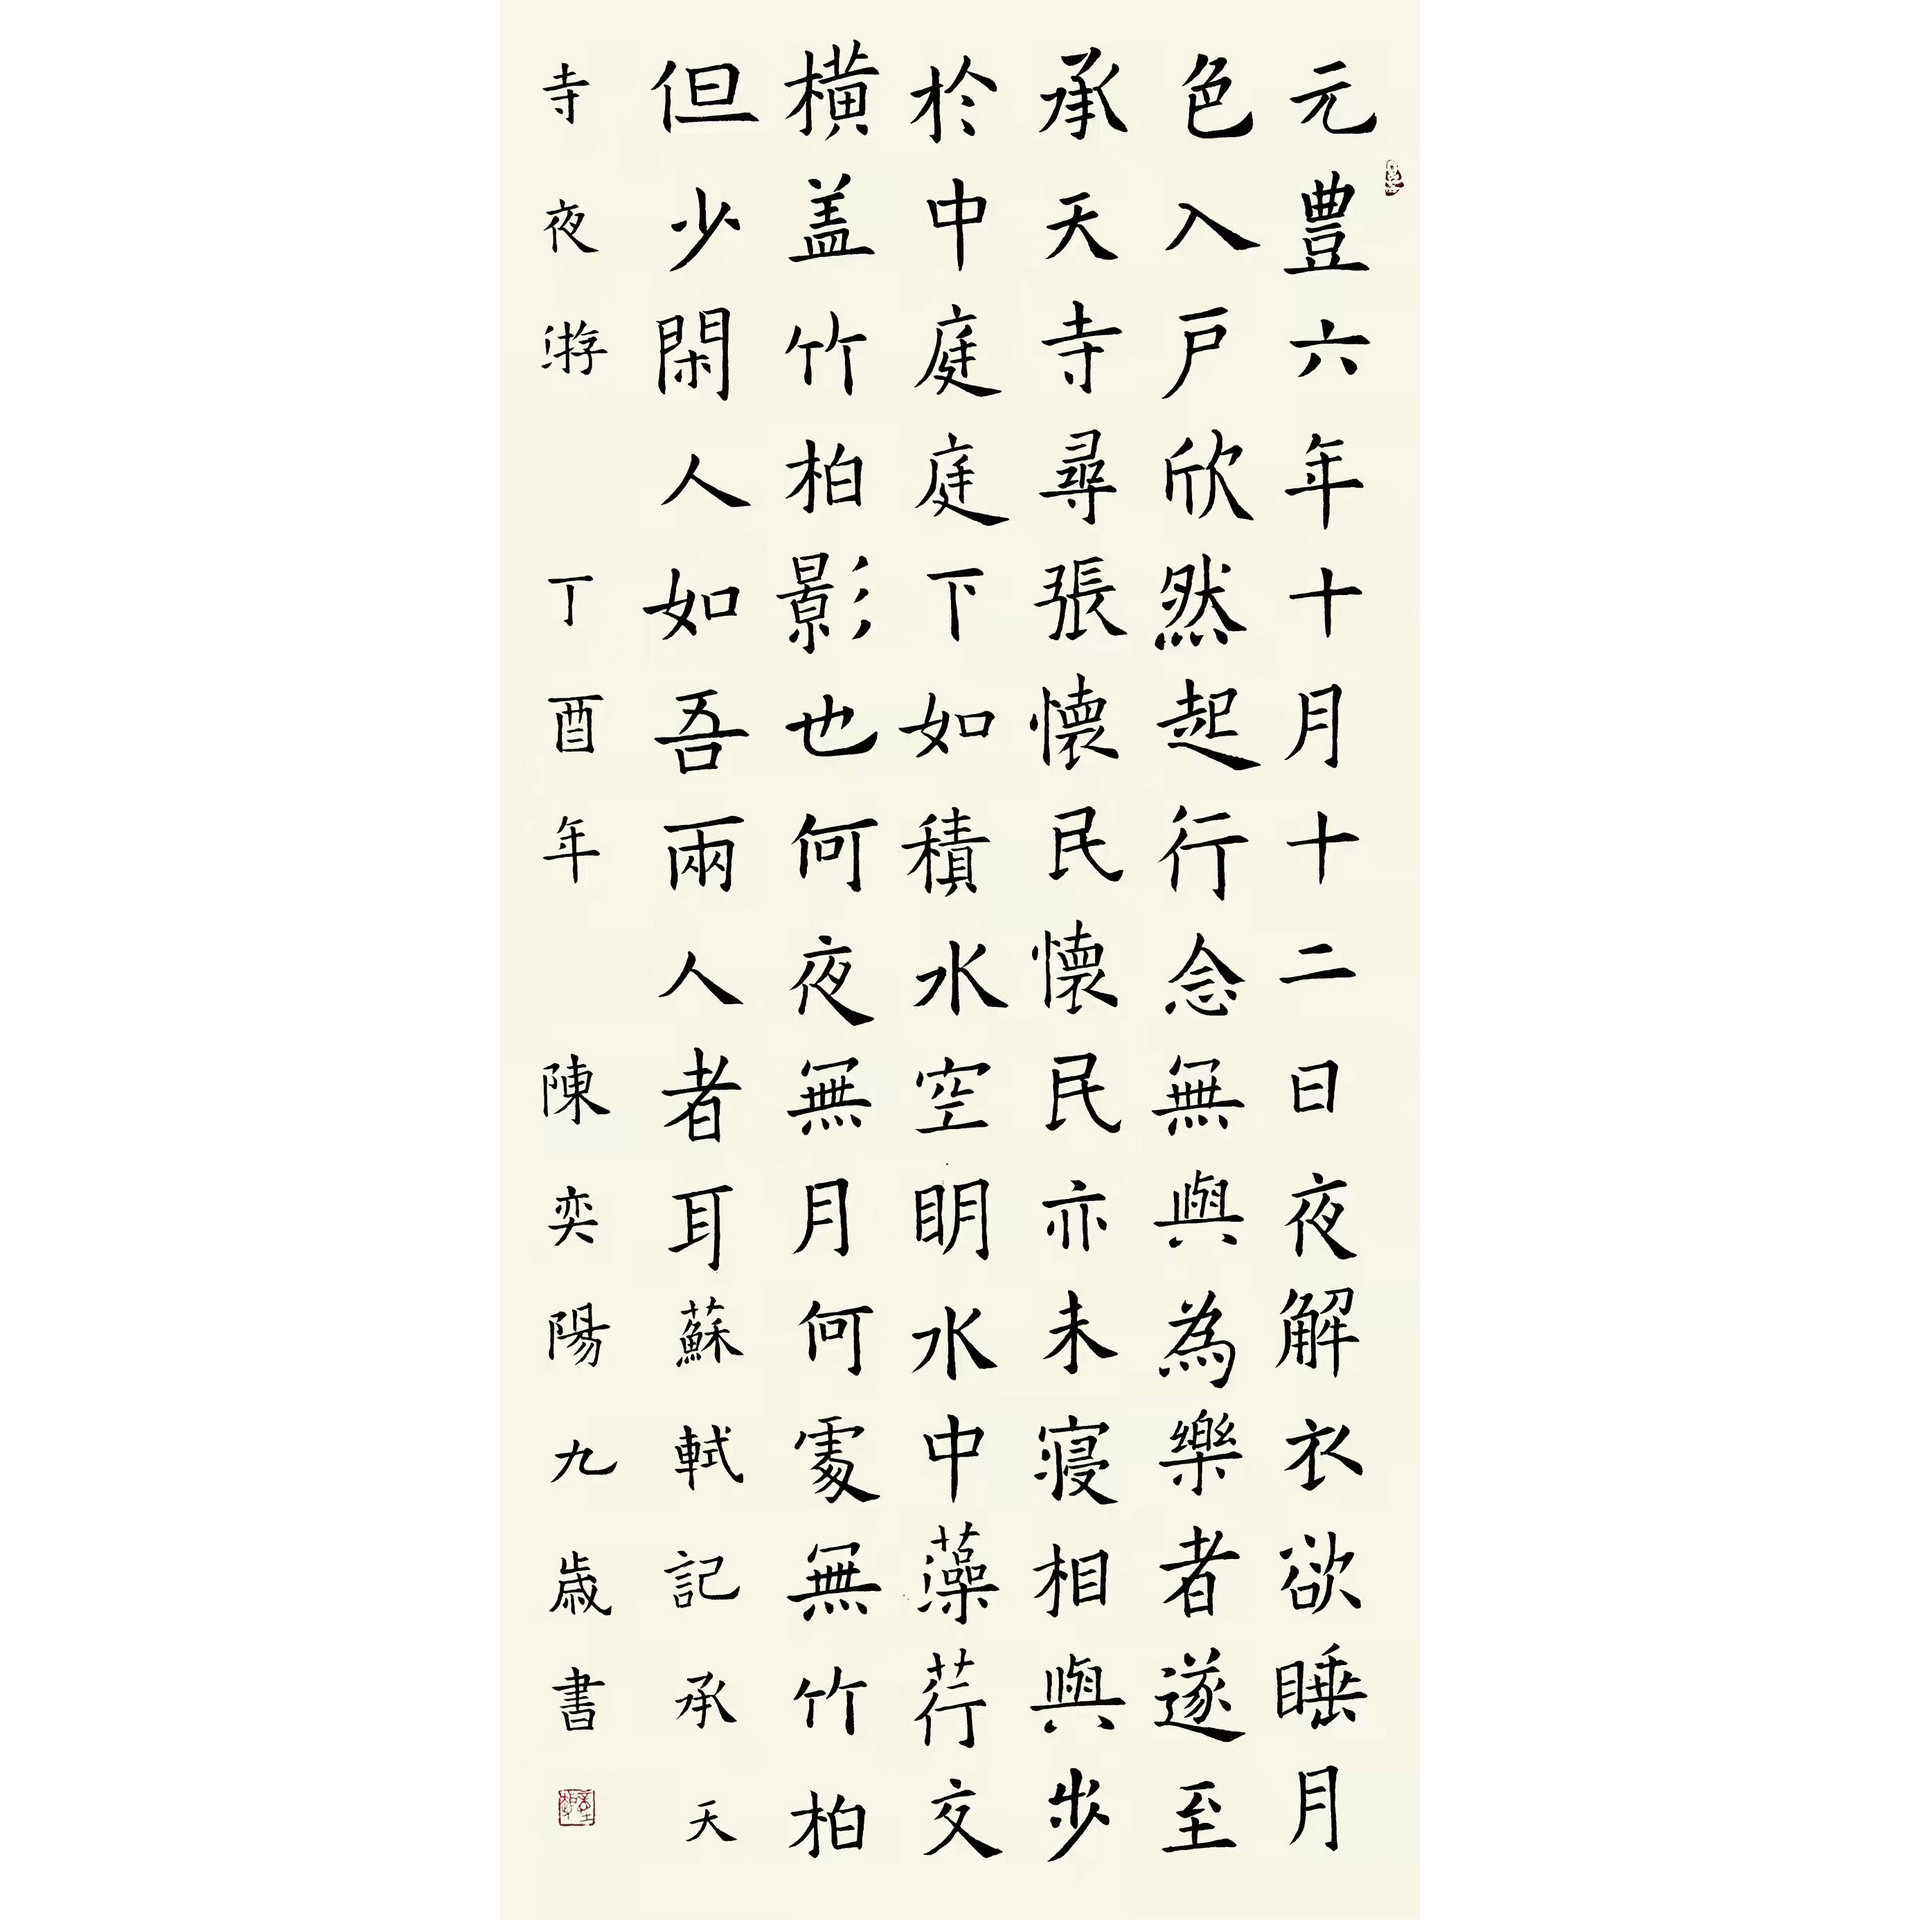 元豊六年十月十二日夜解衣欲睡月
色入戸欣然起行念無與為樂者遂至
承天寺尋張懷民懷民亦未寝相與步
於中庭庭下如積水空明水中藻荇交
橫盖竹柏影也何夜無月何處無竹柏
但少閑人如吾兩人者耳蘇軾記承天
寺夜游 丁酉年 陳奕陽九歲書